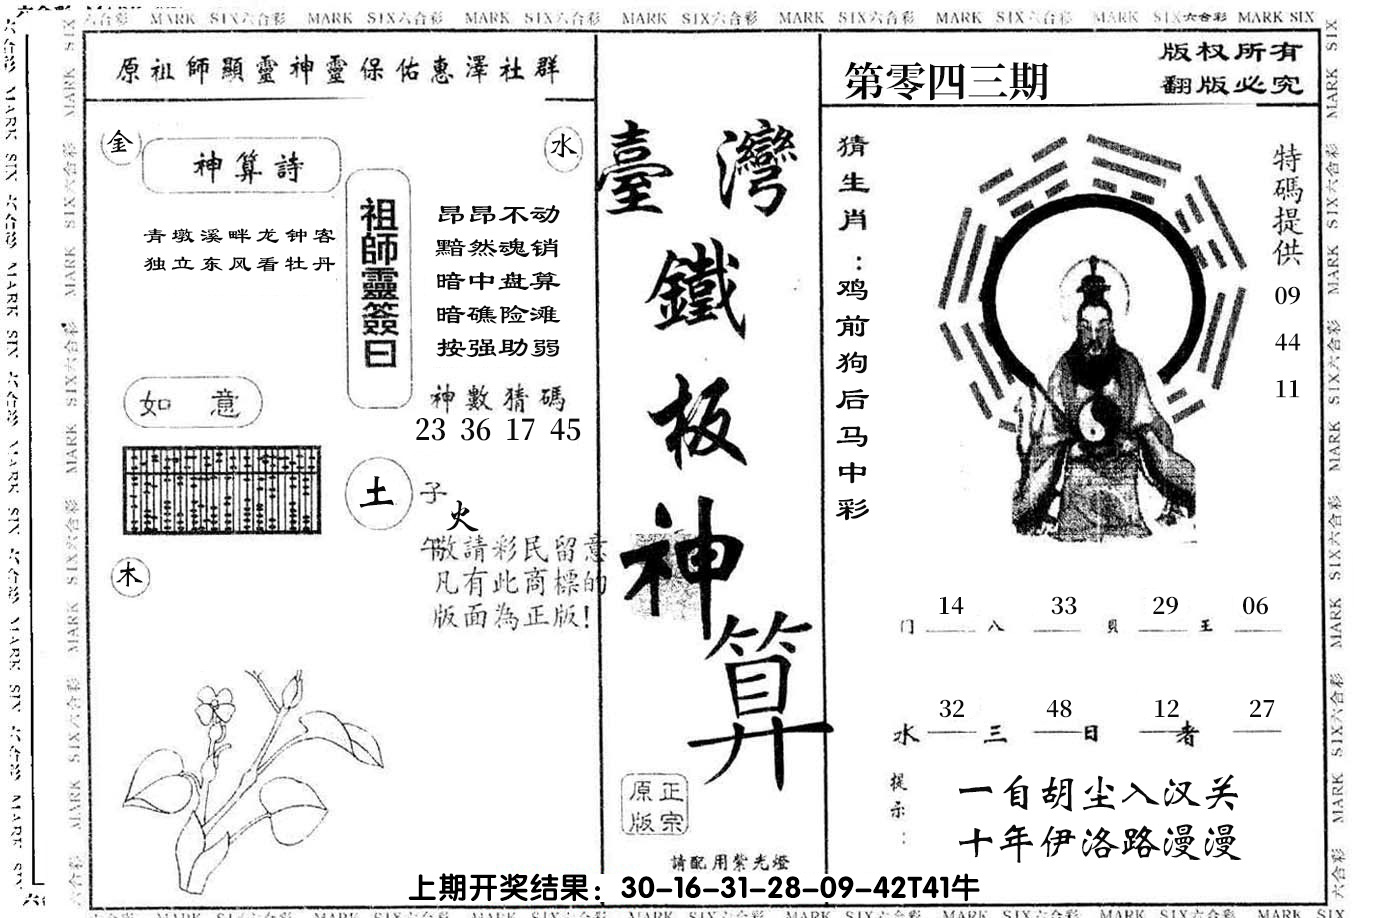 MARK SIX六合彩 MARK SIX六合彩 MARK SIX六合彩 MARK SIX六合彩 MARK SIX六合彩 MARK SIX六合彩 MARK SIX六合彩 MARK SIX
原祖師顯靈神靈保佑惠澤社群
金
水
神算詩
青墩溪畔龙钟客
独立东风看牡丹
祖師靈簽曰
昂昂不动
黯然魂销
暗中盘算
暗礁险滩
按强助弱
神數猜碼
23 36 17 45
如意
土
子
火
午
敬請彩民留意
凡有此商標的
版面為正版!
木
臺灣
鐵
板
神
算
正宗
原版
請配用紫光燈
第零四三期
版权所有
翻版必究
猜生肖:鸡前狗后马中彩
特碼提供
09
44
11
14 33 29 06
门 八 貝 王
32 48 12 27
水 三 日 者
提示:
一自胡尘入汉关
十年伊洛路漫漫
上期开奖结果：30-16-31-28-09-42T41牛